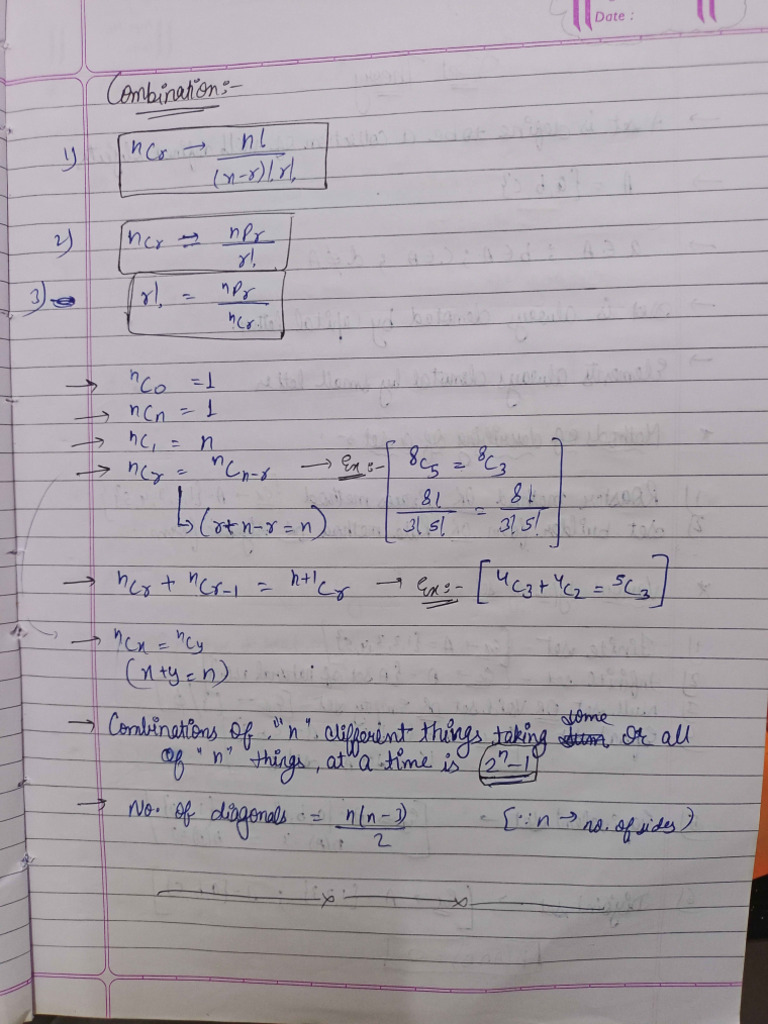 Date :
Combination:-
1) nCr → n! / (n-r)! r!
2) nCr = nPr / r!
3) r! = nPr / nCr
→ nC0 = 1
→ nCn = 1
→ nC1 = n
→ nCr = nCn-r → Ex:- [ 8C5 = 8C3
8! / 3! 5! = 8! / 3! 5! ]
↳ (r+n-r = n)
→ nCr + nCr-1 = n+1Cr → Ex:- [ 4C3 + 4C2 = 5C3 ]
→ nCx = nCy
(x+y = n)
→ Combinations of "n" different things, taking some or all
of "n" things, at a time is 2^n - 1
→ No. of diagonals = n(n-3) / 2 [∵ n → no. of sides)